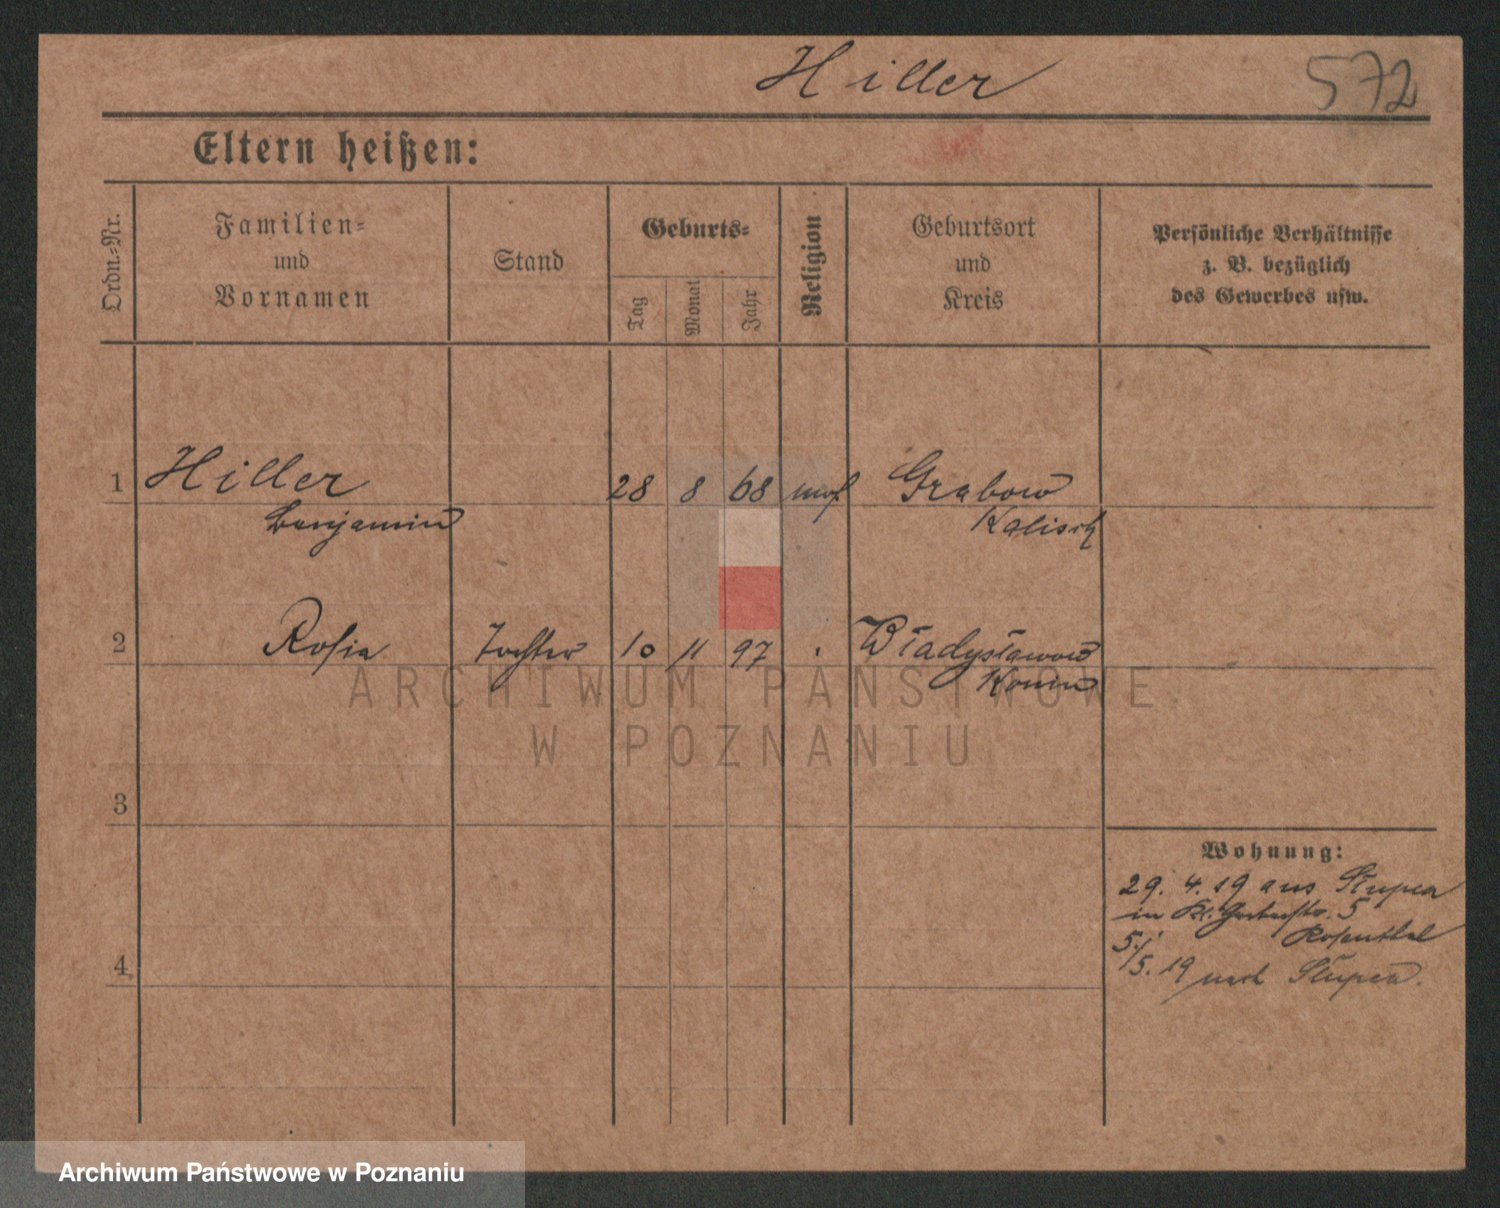 Hiller
572
Eltern heißen:
Ordn.=Nr.
Familien=
und
Vornamen
Stand
Geburts=
Tag
Monat
Jahr
Religion
Geburtsort
und
Kreis
Persönliche Verhältnisse
z. B. bezüglich
des Gewerbes usw.
1 Hiller 28 8 68 mos Grabow
Benjamin Kalisch
2 Rosia Tochter 10 11 97 Władysławow
Konin
3
4
Wohnung:
29. 4. 19 aus Słupca
in Kl. Gerberstr. 5
Rosenthal
5./5. 19 nach Słupca.
ARCHIWUM PAŃSTWOWE
W POZNANIU
Archiwum Państwowe w Poznaniu